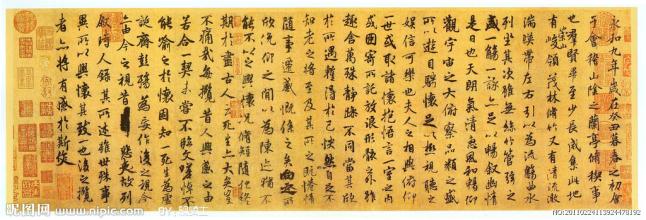 永和九年歲在癸丑暮春之初會
于會稽山陰之蘭亭脩稧事
也羣賢畢至少長咸集此地
有崇山峻領茂林脩竹又有清流激
湍暎帶左右引以為流觴曲水
列坐其次雖無絲竹管弦之
盛一觴一詠亦足以暢叙幽情
是日也天朗氣清惠風和暢仰
觀宇宙之大俯察品類之盛
所以遊目騁懷足以極視聽之
娛信可樂也夫人之相與俯仰
一世或取諸懷抱悟言一室之內
或因寄所託放浪形骸之外雖
趣舍萬殊靜躁不同當其欣
於所遇蹔得於己快然自足不
知老之將至及其所之既惓情
隨事遷感慨係之矣向之所
欣俛仰之間以為陳迹猶不
能不以之興懷況脩短隨化終
期於盡古人云死生亦大矣豈
不痛哉每攬昔人興感之由
若合一契未嘗不臨文嗟悼不
能喻之於懷固知一死生為虛
誕齊彭殤為妄作後之視今
亦由今之視昔悲夫故列
叙時人錄其所述雖世殊事
異所以興懷其致一也後之攬
者亦將有感於斯文
www.nipic.com
NO:20110224113924478192